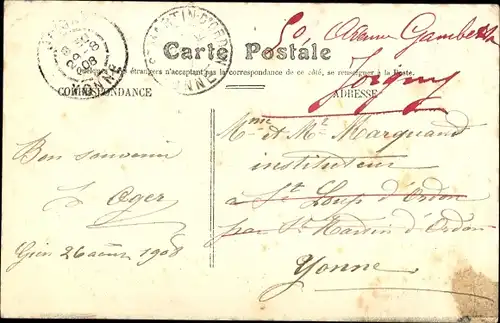 50, Avenue Gambetta
ST MARTIN-D'ORDON
YONNE
YONNE
Carte Postale
étrangers n'acceptant pas la correspondance de ce côté, se renseigner à la Poste.
CORRESPONDANCE
ADRESSE
Joigny
Mme et Mr Marquand
instituteur
à St Loup d'Ordon
par St Martin d'Ordon
Yonne
Bon souvenir
Oger
Gien 26 août 1908